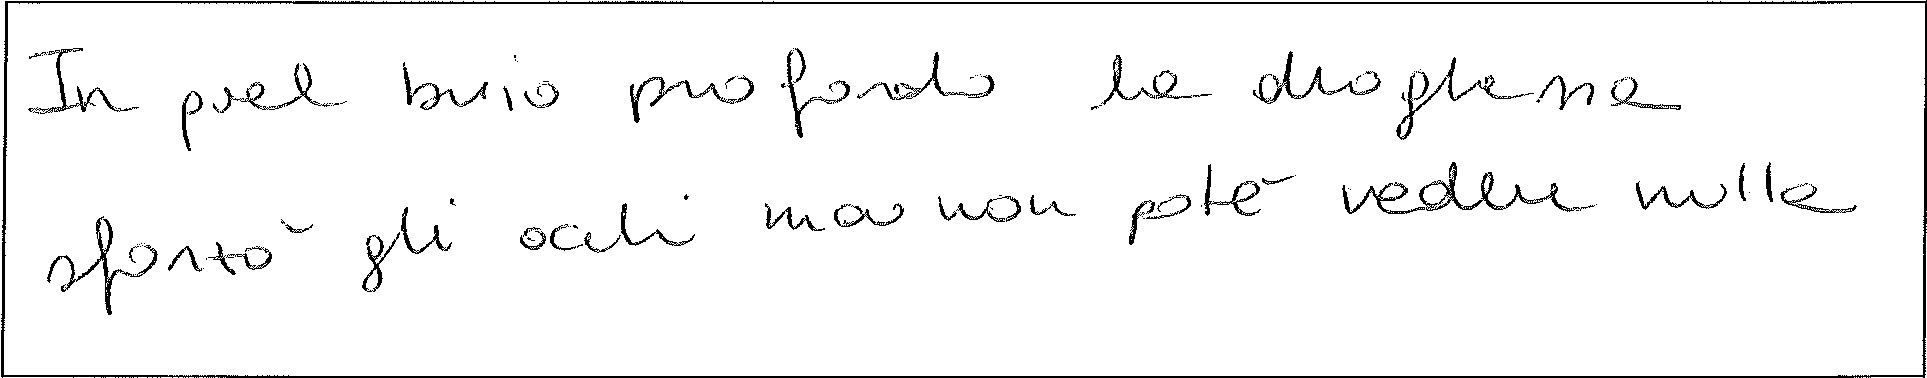 In quel buio profondo la drogliera
sforzò gli occhi ma non poté vedere nulla